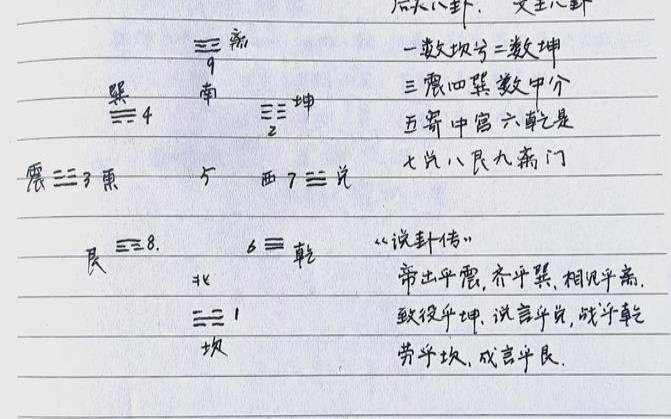 后天八卦. 文王八卦
☲ 离
9
南
巽
☴ 4
☷ 坤
2
震 ☳ 3 東
5
西 7 ☱ 兑
艮 ☶ 8.
6 ☰ 乾
北
☵ 1
坎
一数坎兮二数坤
三震四巽数中分
五寄中宫六乾是
七兑八艮九离门
“说卦传”
帝出乎震, 齐乎巽, 相见乎离.
致役乎坤, 说言乎兑, 战乎乾
劳乎坎, 成言乎艮.